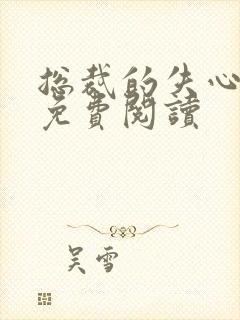 总裁的失心
免費閱讀
吴雪